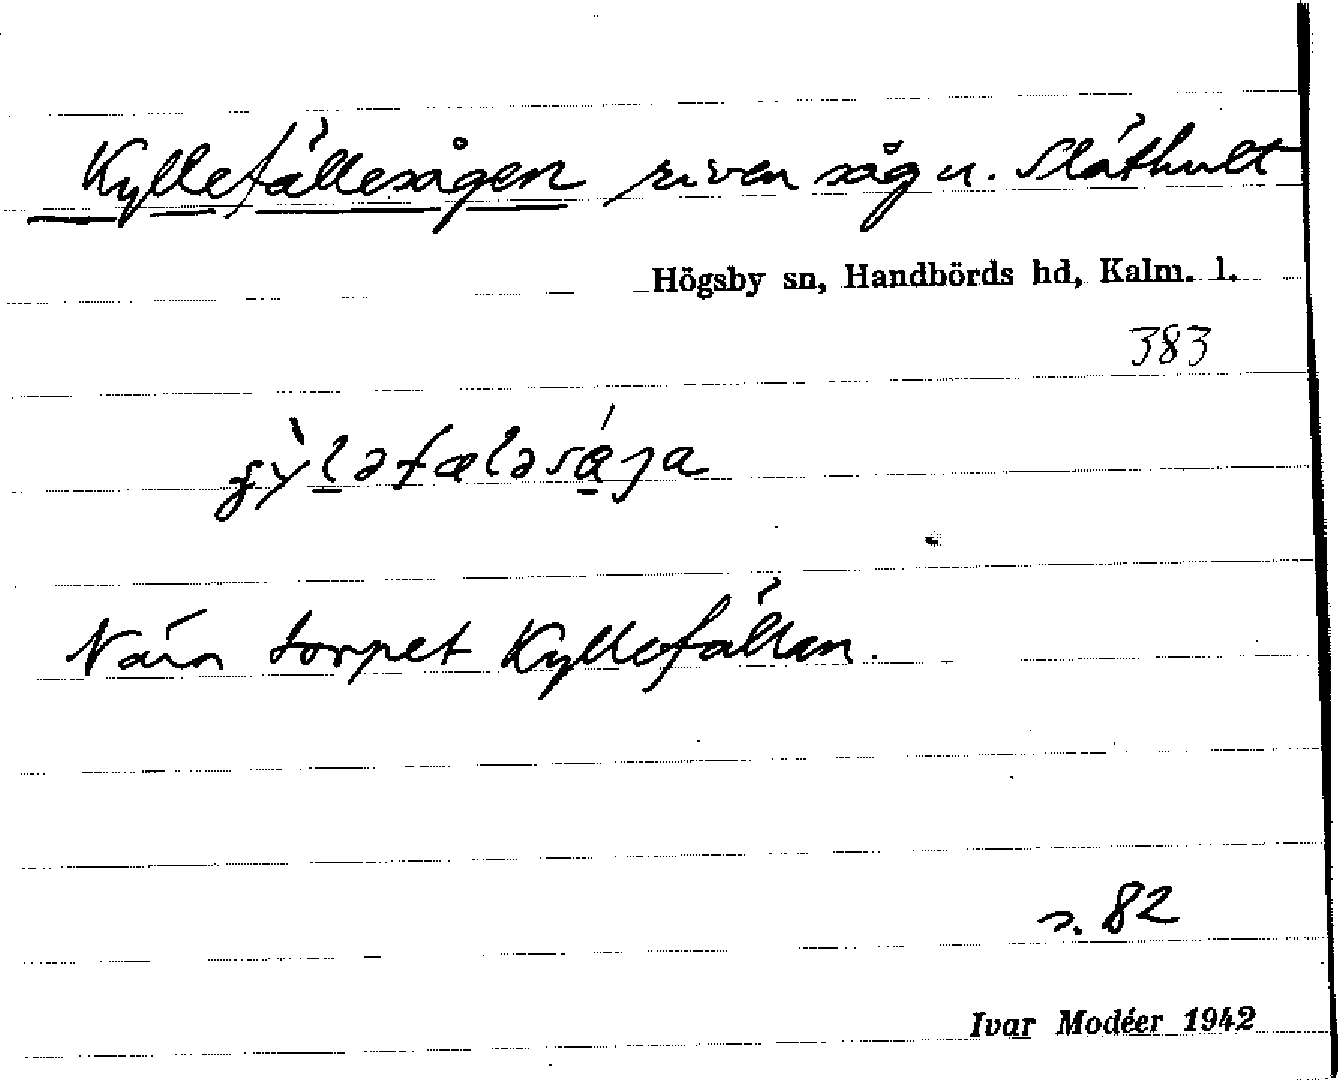 Kyllefällesågen riven såg u. Släthult
Högsby sn, Handbörds hd, Kalm. l.
383
Nära torpet Kyllefällan.
s. 82
Ivar Modéer 1942